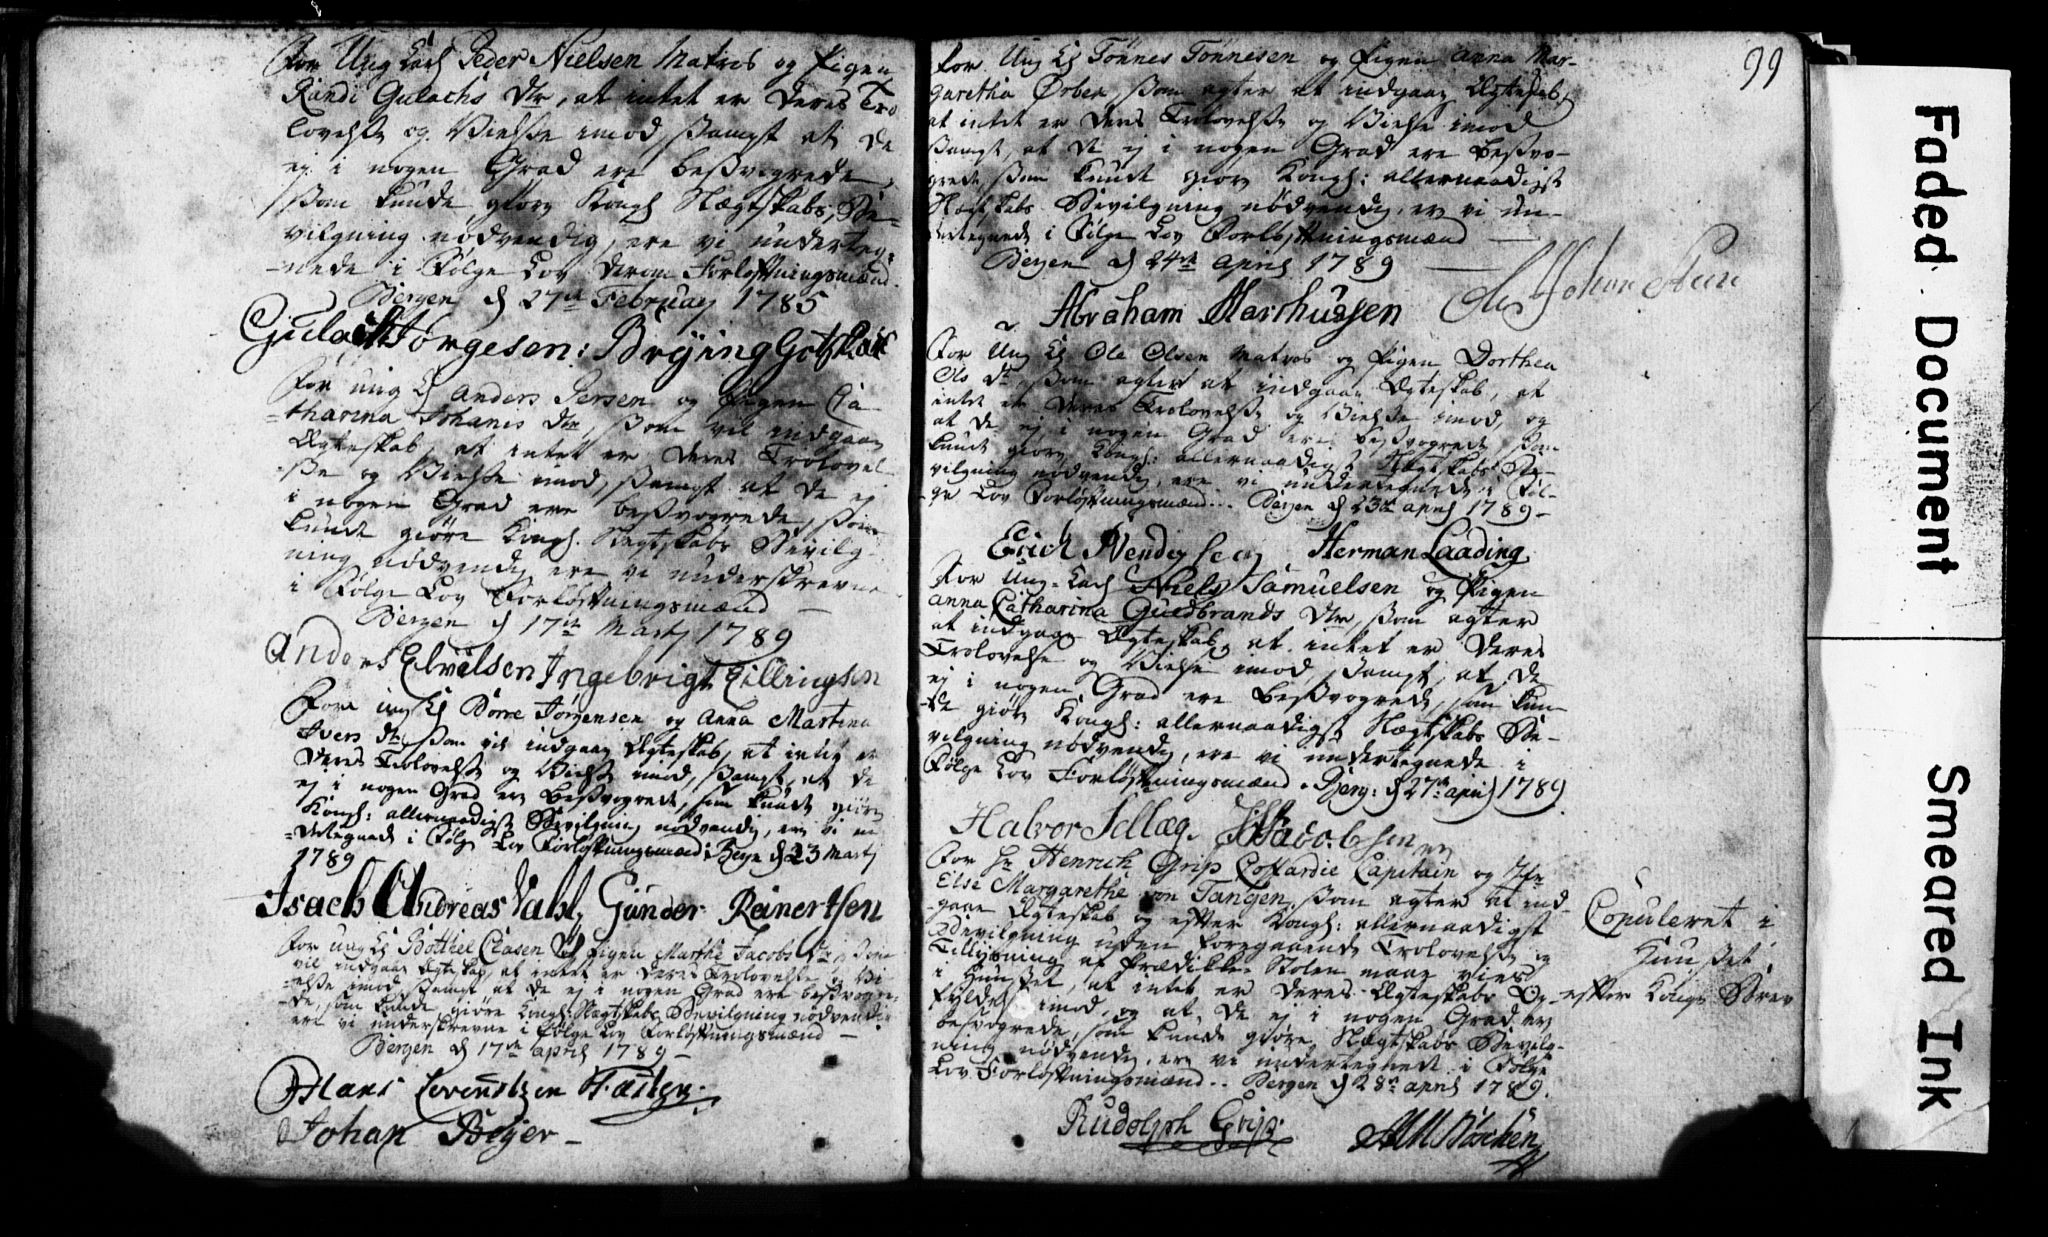 For Ung Karl Peder Nielsen Matros og Pigen
Randi Gulachs dtr, at intet er deres Tro
lovelse og Vielse imod, samt at de
ej i nogen Grad ere besvogrede,
som kunde giøre Kongl Slegtskabs Be-
vilgning nødvendig, ere vi underteg-
-nede i Følge Lov derom Forløftningsmænd.
Bergen d 27de Februar 1785
Gulach Jørgesen: Brÿing
For ung K Anders Persen og Pigen Ca
-tharina Johanis dtr, som vil indgaae
Ægteskab, at intet er deres Trolovel-
se og Vielse imod, samt at de ej
i nogen Grad ere besvogrede, som
kunde giøre Kongl. Slegtskabs Bevilg-
ning nødvendig ere vi underskrevne
i Følge Lov Forløftningsmænd
Bergen d 17de Marty 1789
Anders Ingebrigt Tillingsen
For ung K Børre Jørgensen og Anna Martina
Ivers dtr, som vil indgaae Ægteskab, at intet er
deres Trolovelse og Vielse imod, samt, at de
ej i nogen Grad ere besvogrede, som kunde giøre
Kongl: allernaadigst Bevilgning nødvendig, ere vi un
-dertegnede i Følge Lov Forløftningsmænd: Bergen d 23 Marty
1789
Isach Andreas Vahl, Gunder Reinertsen
For ung K Botthel Clasen og Pigen Marthe Jacobs dtr, som
vil indgaae Ægteskab, at intet er deres Trolovelse og Vi
-else imod samt at de ej i nogen Grad ere besvogre-
de, som kunde giøre Kongl: Slegtskabs Bevilgning nødvendig
ere vi underskrevne i Følge Lov Forløftningsmænd
Bergen d 17de april 1789
Hans
Johan Beyer
99
For Ung K Tønnes Tønnesen og Pigen Anna Mar-
garetha, som agter at indgaae Ægteskab,
at intet er deres Trolovelse og Vielse imod
samt, at de ej i nogen Grad ere besvo-
grede, som kunde giøre Kongl: allernaadigst
Slegtskabs Bevilgning nødvendig, ere vi un-
dertegnede i Følge Lov Forløftningsmænd
Bergen d 24de april 1789
Abraham Marthussen Ole Johan
For Ung K Ole Olsen Matros og Pigen Dorthea
Ols dtr, som agter at indgaae Ægteskab, at
intet er deres Trolovelse og Vielse imod, og
at de ej i nogen Grad ere besvogrede, som
kunde giøre Kongl: allernaadigst Slegtskabs Be-
vilgning nødvendig, ere vi undertegnede i Føl-
ge Lov Forløftningsmænd. Bergen d 23de april 1789
Erich Herman Laading
For Ung-Karl Niels Samuelsen og Pigen
Anna Catharina Guldbrands dtr, som agter
at indgaae Ægteskab, at intet er deres
Trolovelse og Vielse imod, samt, at de
ej i nogen Grad ere besvogrede, som kun-
de giøre Kongl: allernaadigst Slegtskabs Be-
vilgning nødvendig, ere vi undertegnede i
Følge Lov Forløftningsmænd. Berg: d 27de april 1789
Halvor Sellæg. Jacobsen
For Hr Henrich Grip Coffardie Capitain og Jfr
Else Margarethe von Tangen, som agter at ind-
gaae Ægteskab og efter Kongl: allernaadigst
Bevilgning uden foregaaende Trolovelse og
Tillysning af Prædike-Stolen maae vies
i Huuset, at intet er deres Ægteskabs Op-
fyldelse imod, og at de ej i nogen Grad ere
besvogrede, som kunde giøre Slegtskabs Bevilg-
ning nødvendig, ere vi undertegnede i Følge
Lov Forløftningsmænd.. Bergen d 28de april 1789.
Rudolph Grip.
Copuleret i
Huuset
efter Kongs Brev
Faded Document
Smeared Ink